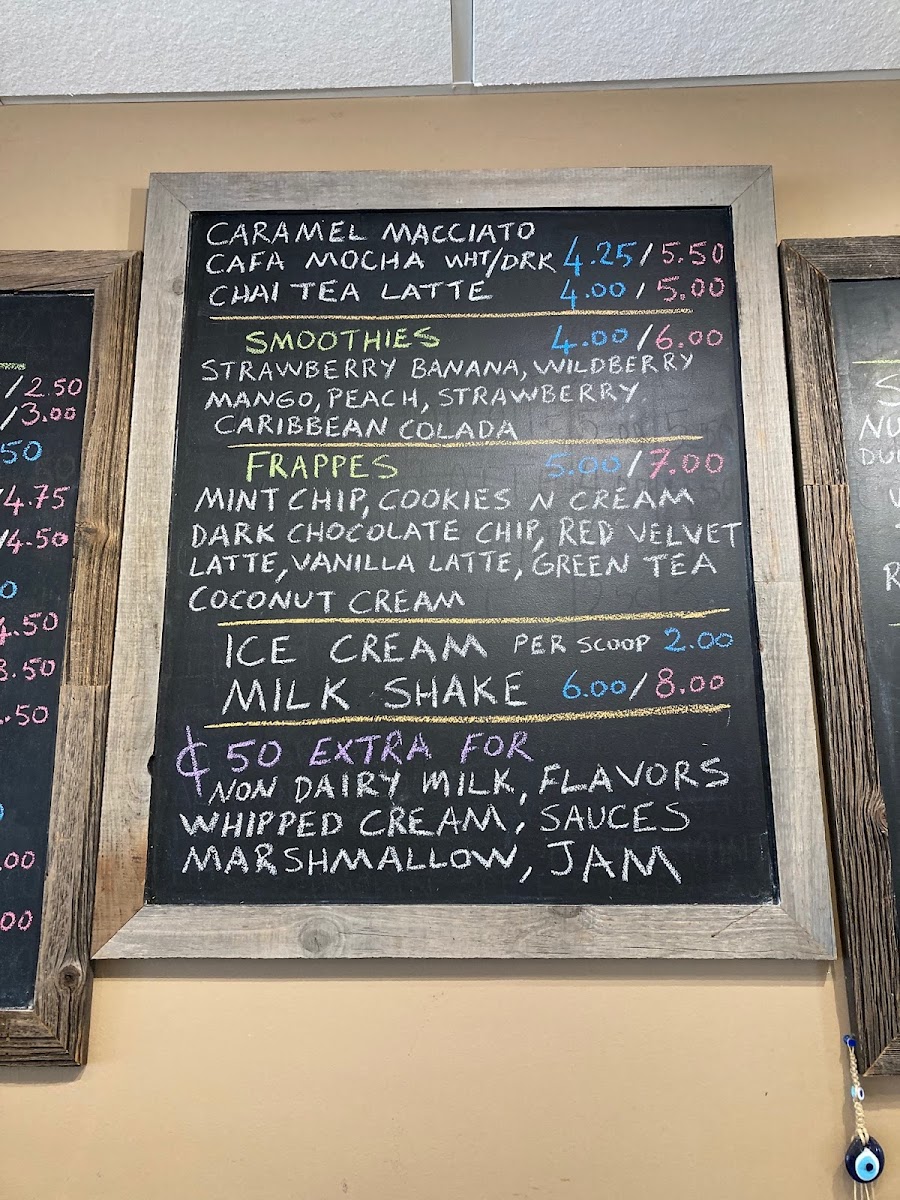 CARAMEL MACCIATO
CAFA MOCHA WHT/DRK 4.25/5.50
CHAI TEA LATTE 4.00/5.00
SMOOTHIES 4.00/6.00
STRAWBERRY BANANA, WILDBERRY
MANGO, PEACH, STRAWBERRY
CARIBBEAN COLADA
FRAPPES 5.00/7.00
MINT CHIP, COOKIES N CREAM
DARK CHOCOLATE CHIP, RED VELVET
LATTE, VANILLA LATTE, GREEN TEA
COCONUT CREAM
ICE CREAM PER SCOOP 2.00
MILK SHAKE 6.00/8.00
₵50 EXTRA FOR
NON DAIRY MILK, FLAVORS
WHIPPED CREAM, SAUCES
MARSHMALLOW, JAM
/2.50
/3.00
50
/4.75
/4.50
0
4.50
3.50
.50
.00
00
S
NU
DU
R